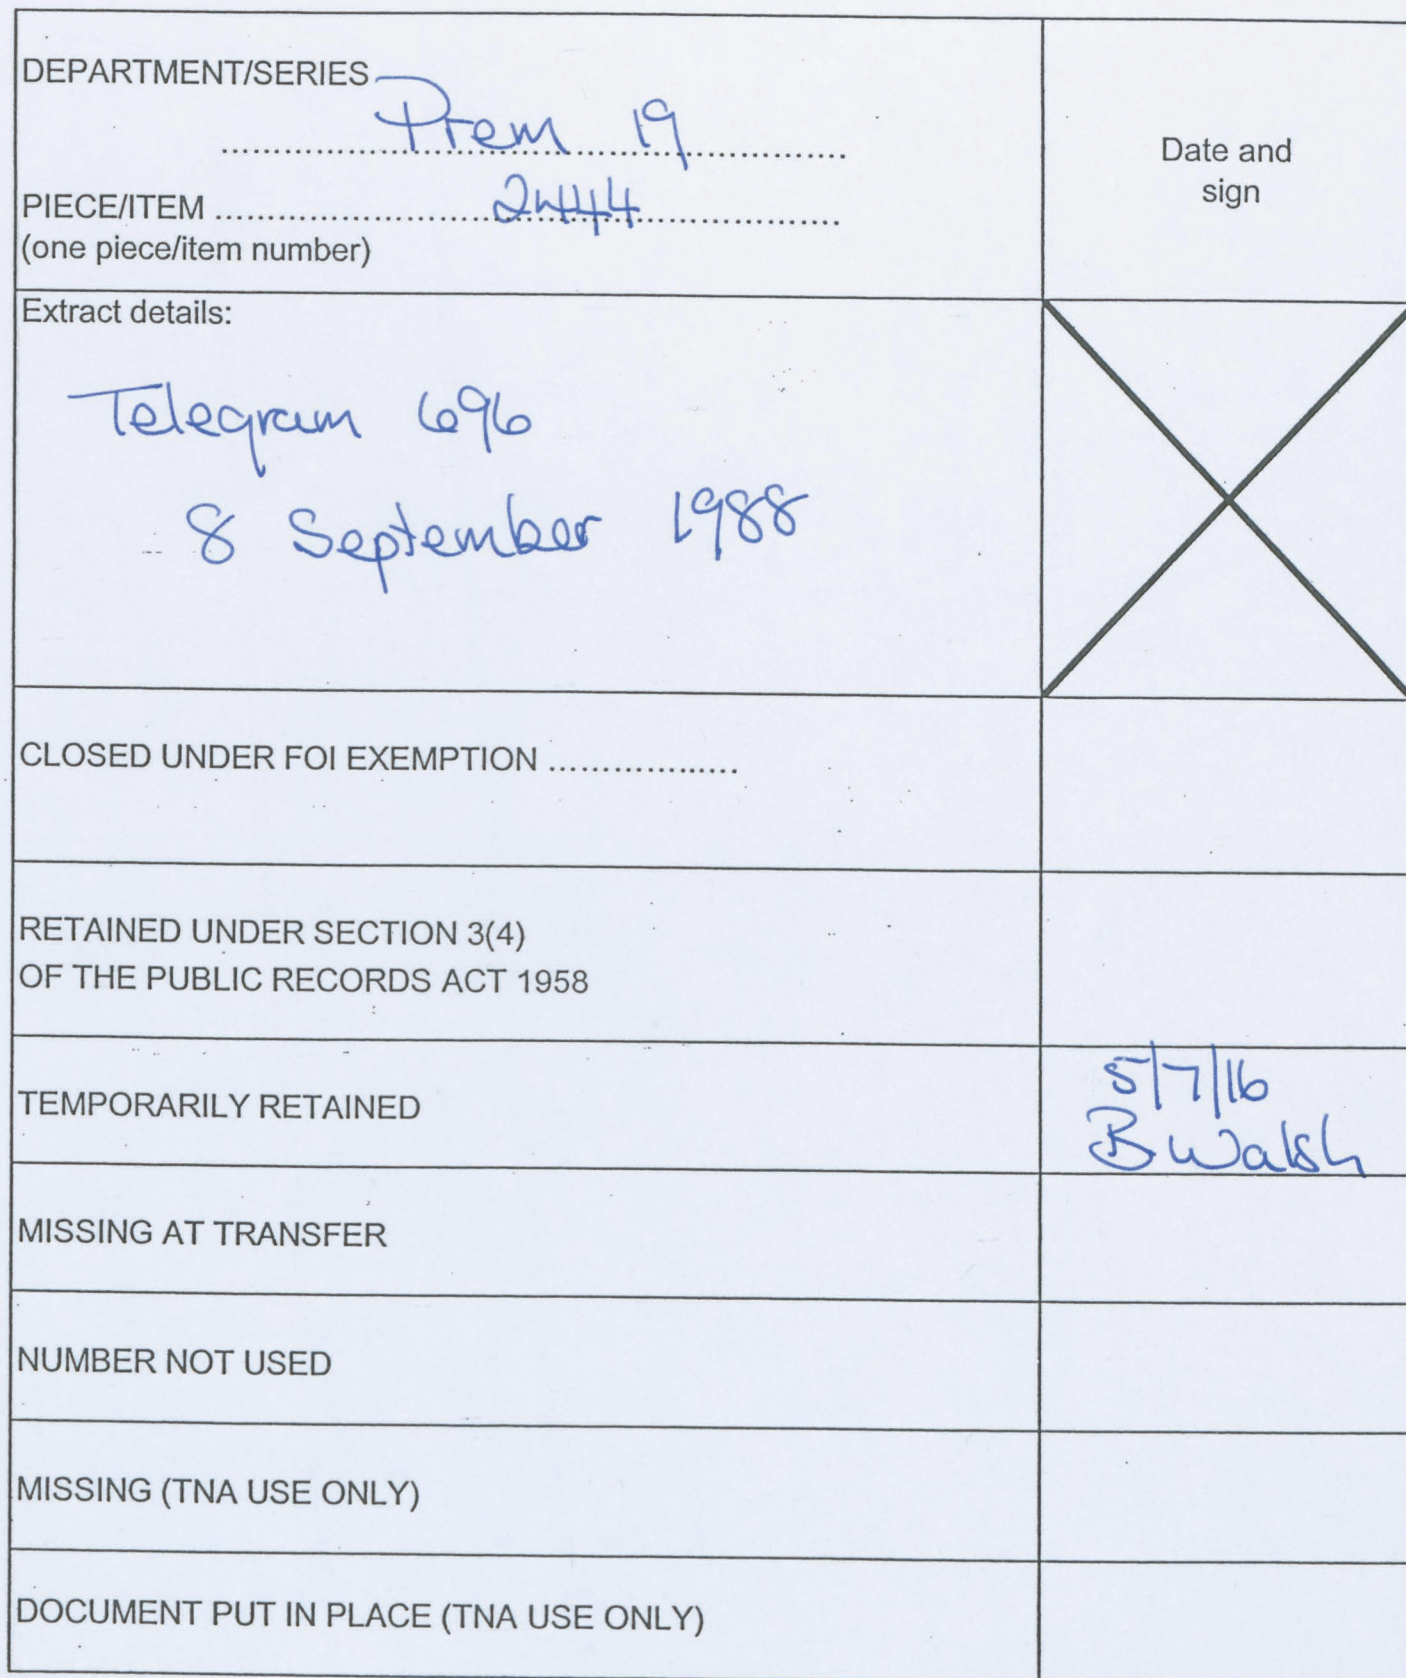 DEPARTMENT/SERIES
Prem 19
Date and
sign
PIECE/ITEM 2444
(one piece/item number)
Extract details:
Telegram 696
8 September 1988
CLOSED UNDER FOI EXEMPTION ..................
RETAINED UNDER SECTION 3(4)
OF THE PUBLIC RECORDS ACT 1958
TEMPORARILY RETAINED
5/7/16
B Walsh
MISSING AT TRANSFER
NUMBER NOT USED
MISSING (TNA USE ONLY)
DOCUMENT PUT IN PLACE (TNA USE ONLY)